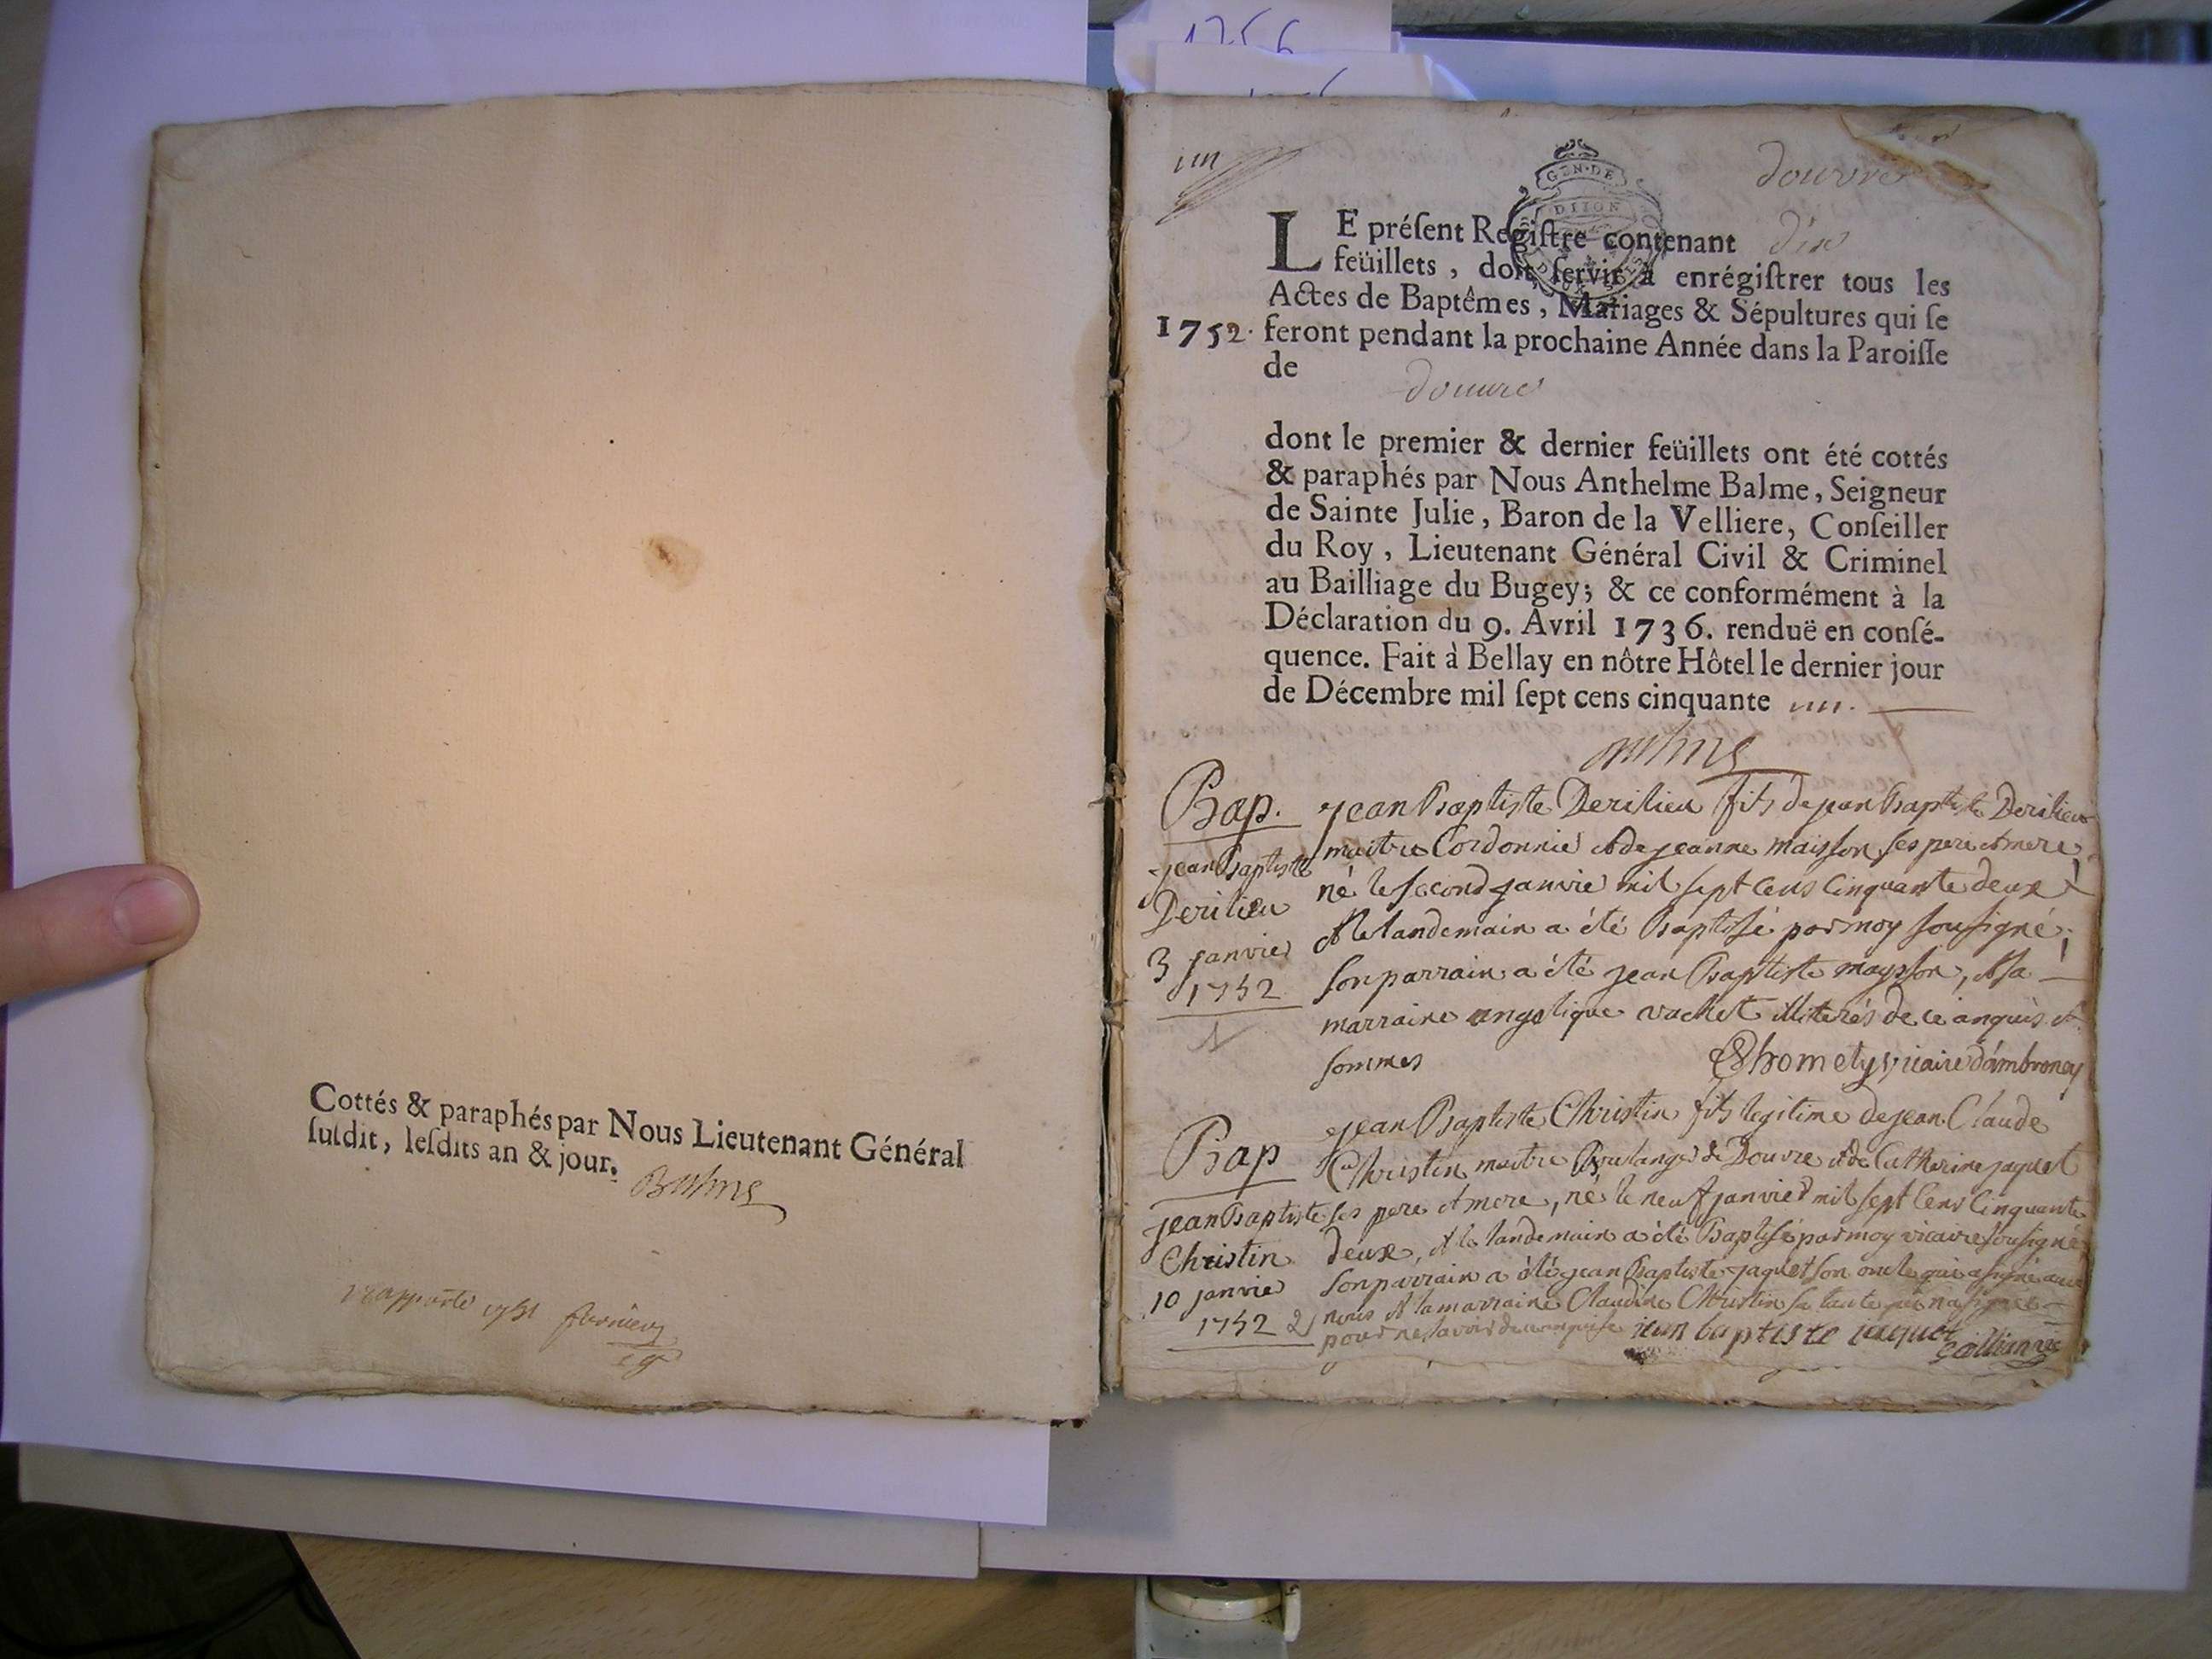 1756
Cottés & paraphés par Nous Lieutenant Général
ſuſdit, leſdits an & jour.
Balme
rapporté 1751
un
GEN·DE
DIJON
douvre
LE préſent Regiſtre contenant dix
feüillets, doit ſervir à enrégiſtrer tous les
Actes de Baptêmes, Mariages & Sépultures qui ſe
1752. feront pendant la prochaine Année dans la Paroiſſe
de
douvre
dont le premier & dernier feüillets ont été cottés
& paraphés par Nous Anthelme Balme, Seigneur
de Sainte Julie, Baron de la Velliere, Conſeiller
du Roy, Lieutenant Général Civil & Criminel
au Bailliage du Bugey; & ce conformément à la
Déclaration du 9. Avril 1736. renduë en conſé-
quence. Fait à Bellay en nôtre Hôtel le dernier jour
de Décembre mil ſept cens cinquante un.
Balme
Bap.
jean Baptiste
Derilieu
3 janvier
1752
jean Baptiste Derilieu fils de jean Baptiste Derilieu
maitre Cordonnier et de jeanne maisson, ses pere et mere,
né le second janvier mil sept cens cinquante deux
et le landemain a été Baptisé par moy sousigné,
son parrain a été jean Baptiste maysson, et sa
marraine angelique vachet illiterés de ce anquis et
sommes
vicaire d'ambronay
Bap
jean Baptiste
Christin
10 janvier
1752
2
jean Baptiste Christin fils legitime de jean Claude
Christin maitre Boulanger de Douvre et de Catherine jaquet
ses pere et mere, né le neuf janvier mil sept cens cinquante
deux, et le landemain a été Baptisé par moy vicaire sousigné
son parrain a été jean Baptiste jaquet son oncle qui a signé avec
nous et la marraine Claudine Christin sa tante qui n'a signé
pour ne savoir de ce enquise jean baptiste jaquet